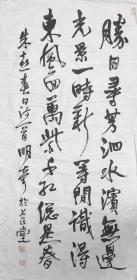 勝日尋芳泗水濱無邊
光景一時新等閒識得
東風面萬紫千紅總是春
朱熹春日詩一首明奇於堂